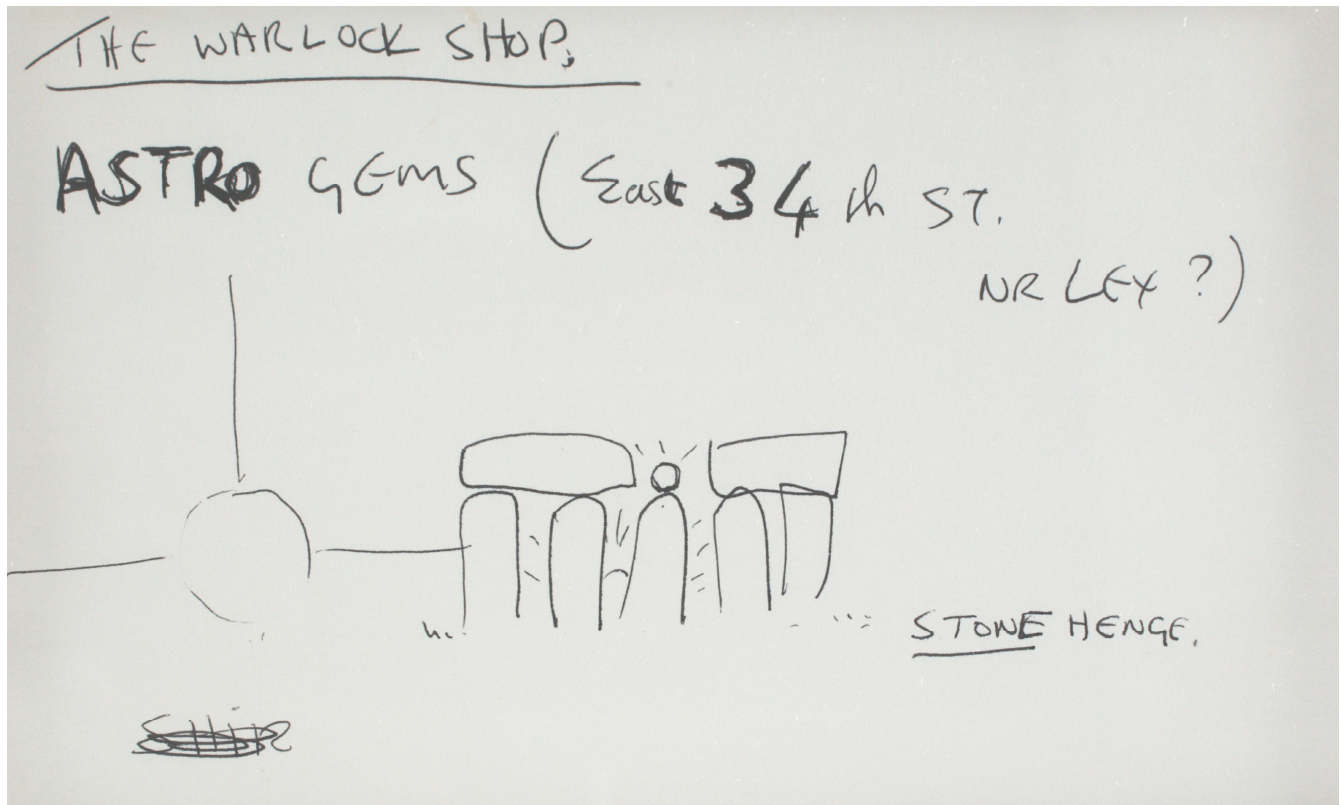 THE WARLOCK SHOP.
ASTRO GEMS (East 34th ST.
NR LEX ?)
STONE HENGE.